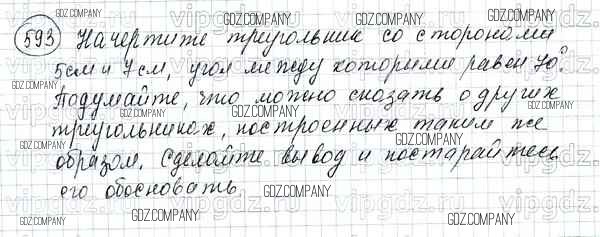 593 Начертите треугольник со сторонами
5см и 7см, угол между которыми равен 70°.
Подумайте, что можно сказать о других
треугольниках, построенных таким же
образом. Сделайте вывод и постарайтесь
его обосновать.
GDZ.COMPANY
vipgdz.com